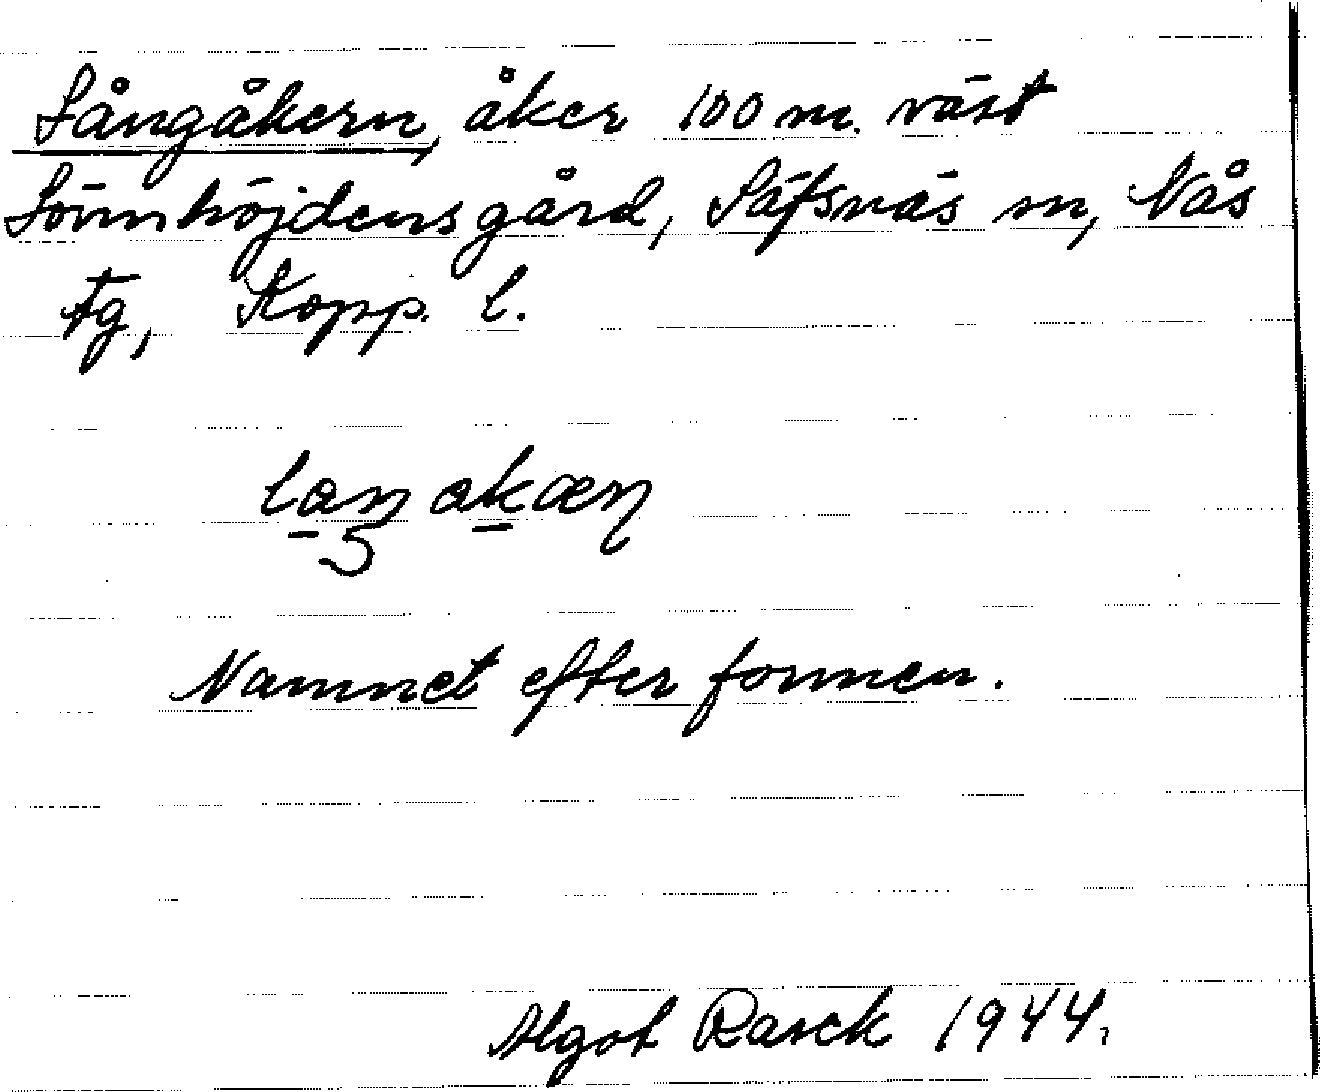 Långåkern, åker 100 m. väst
Lövnhöjdens gård, Säfsnäs sn, Nås
tg, Kopp. l.
Namnet efter formen.
Algot Rasck 1944.